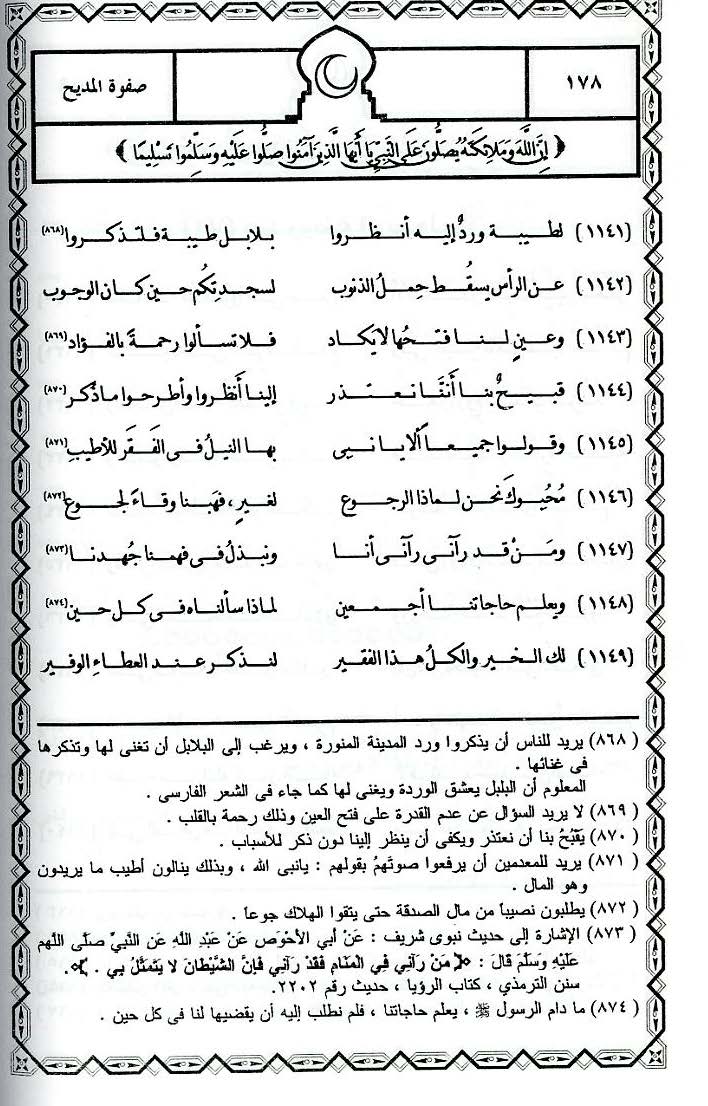 ١٧٨
صفوة المديح
﴿ إِنَّ اللَّهَ وَمَلَائِكَتَهُ يُصَلُّونَ عَلَى النَّبِيِّ يَا أَيُّهَا الَّذِينَ آمَنُوا صَلُّوا عَلَيْهِ وَسَلِّمُوا تَسْلِيمًا ﴾
(١١٤١) لطيبة وردٌ إليه أنظروا بلابل طيبة فلتذكروا (٨٦٨)
(١١٤٢) عن الرأس يسقُط حِملُ الذنوب لسجدتِكُم حين كان الوجوب
(١١٤٣) وعينٍ لنا فتحُها لا يكاد فلا تسألوا رحمةً بالفؤاد (٨٦٩)
(١١٤٤) قبيحٌ بنا أننَّا نعتذر إلينا أَنظروا وأطرحوا ما ذُكر (٨٧٠)
(١١٤٥) وقولوا جميعاً ألا يا نبى بها النيلُ فى الفَقر للأطيبِ (٨٧١)
(١١٤٦) مُحبوكَ نحن لماذا الرجوع لغيرٍ، فهَبنا وقاءً لجوع (٨٧٢)
(١١٤٧) ومَنْ قد رآنى رآنى أنا ونبذلُ فى فهمنا جُهدنا (٨٧٣)
(١١٤٨) ويعلم حاجاتنا أجمعين لماذا سألناه فى كل حين (٨٧٤)
(١١٤٩) لك الخير والكلُ هذا الفقير لنذكر عند العطاءِ الوفير
( ٨٦٨) يريد للناس أن يذكروا ورد المدينة المنورة ، ويرغب إلى البلابل أن تغنى لها وتذكرها
فى غنائها .
المعلوم أن البلبل يعشق الوردة ويغنى لها كما جاء فى الشعر الفارسى .
( ٨٦٩) لا يريد السؤال عن عدم القدرة على فتح العين وذلك رحمة بالقلب .
( ٨٧٠) يَقبُحُ بنا أن نعتذر ويكفى أن ينظر إلينا دون ذكر للأسباب .
( ٨٧١) يريد للمعدمين أن يرفعوا صوتَهمُ بقولهم : يانبى الله ، وبذلك ينالون أطيب ما يريدون
وهو المال .
( ٨٧٢) يطلبون نصيباً من مال الصدقة حتى يتقوا الهلاك جوعاً .
( ٨٧٣) الإشارة إلى حديث نبوى شريف : عَنْ أبي الأحْوَصِ عَنْ عَبْدِ اللَّهِ عَنِ النَّبِيِّ صَلَّى اللَّهم
عَلَيْهِ وَسَلَّمَ قَالَ : ﴿ مَنْ رَآنِي فِي الْمَنَامِ فَقَدْ رَآنِي فَإِنَّ الشَّيْطَانَ لا يَتَمَثَّلُ بِي . ﴾.
سنن الترمذي ، كتاب الرؤيا ، حديث رقم ٢٢٠٢.
( ٨٧٤) ما دام الرسول ﷺ ، يعلم حاجاتنا ، فلم نطلب إليه أن يقضيها لنا فى كل حين .